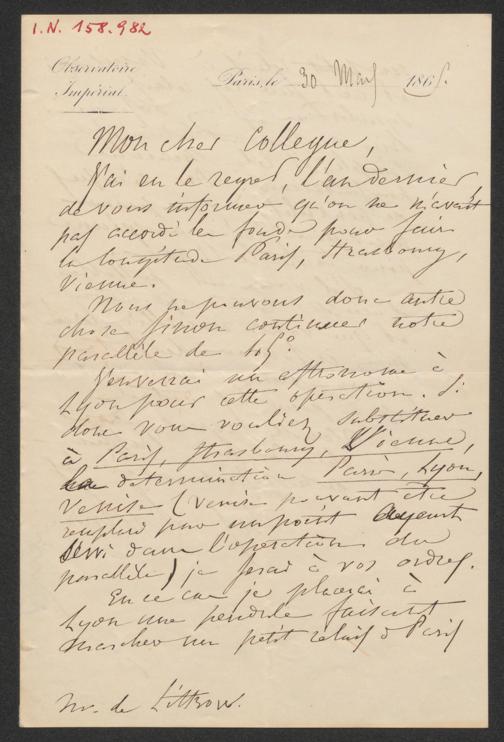 I.N. 158.982
Observatoire
Impérial.
Paris, le 30 Mars 1865.
Mon cher Collegue,
J'ai eu le regret, l'an dernier,
de vous informer qu'on ne m'avait
pas accordé les fonds pour faire
la longitude Paris, Strasbourg,
Vienne.
Nous ne pouvons donc autre
chose sinon continuer notre
parallèle de 45°.
J'enverrai un astronome à
Lyon pour cette opération. Si
donc vous vouliez substituer
à Paris, Strasbourg, Vienne,
la determination Paris, Lyon,
Venise (Venise pouvant être
remplacé par un point ayant
servi dans l'opération du
parallèle) je serai à vos ordres.
En ce cas je placerai à
Lyon une pendule faisant
marcher un petit relais à Paris
Mr. de Littrow.